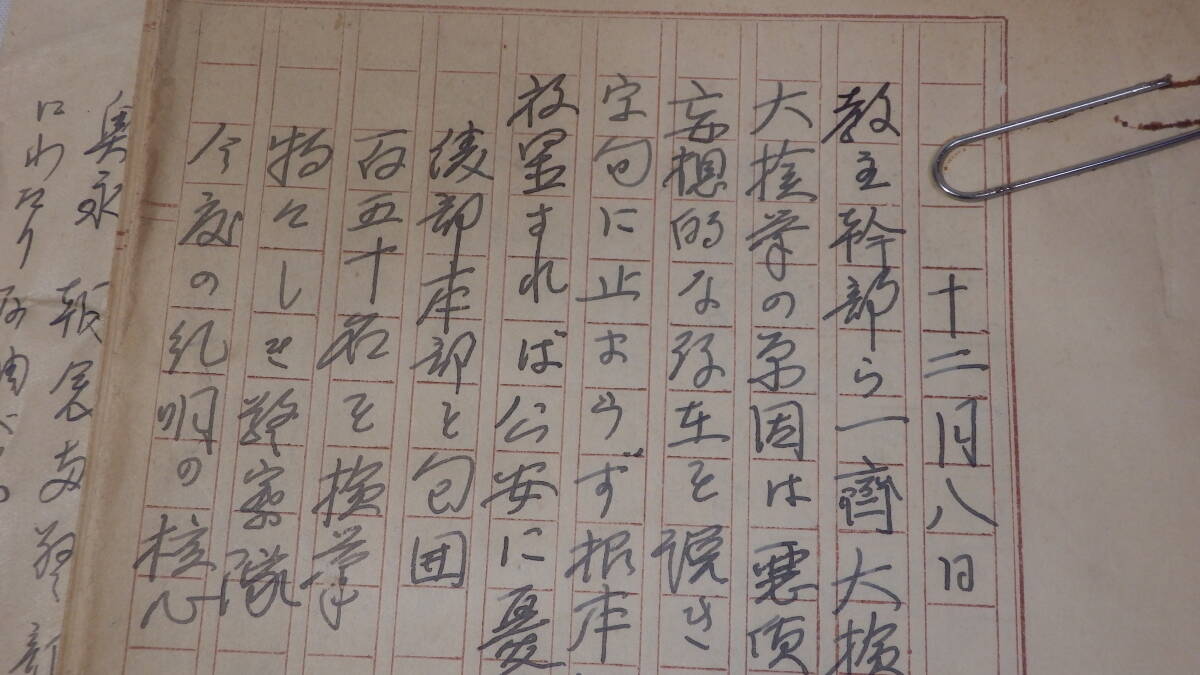 十二月八日
教主幹部ら一齊大検
大検挙の原因は悪質
妄想的な弥在を説き
字句に止まらず根本
放置すれば公安に憂
綾部本部を包囲
百五十名を検挙
物々しき警察隊
今度の糺明の核心
奥永
にわたり